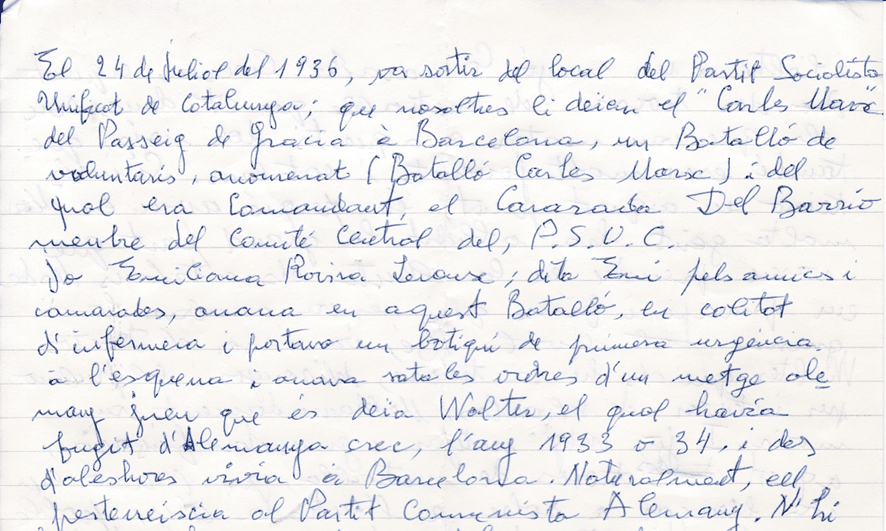 El 24 de Juliol del 1936, va sortir del local del Partit Socialista
Unificat de Catalunya; que nosaltres li deien el "Carles Marx"
del Passeig de Gracia à Barcelona, un Batalló de
voluntaris, anomenat (Batalló Carles Marx) i del
qual era Comandant, el Camarada Del Barrio
membre del Comité Central del, P.S.U.C.
Jo Emiliana Rovira ; dita Emi pels amics i
camarades, anava en aquest Batalló, en calitat
d'infermera i portava un botiquí de primera urgéncia.
à l'esquena i anava sota les ordres d'un metge ale
many jueu que és deia Walter, el qual havia
fugit d'Alemanya crec, l'any 1933 o 34. i des
d'aleshores vivia à Barcelona. Naturalment, ell
perteneixia al Partit Comunista Alemany. N'hi